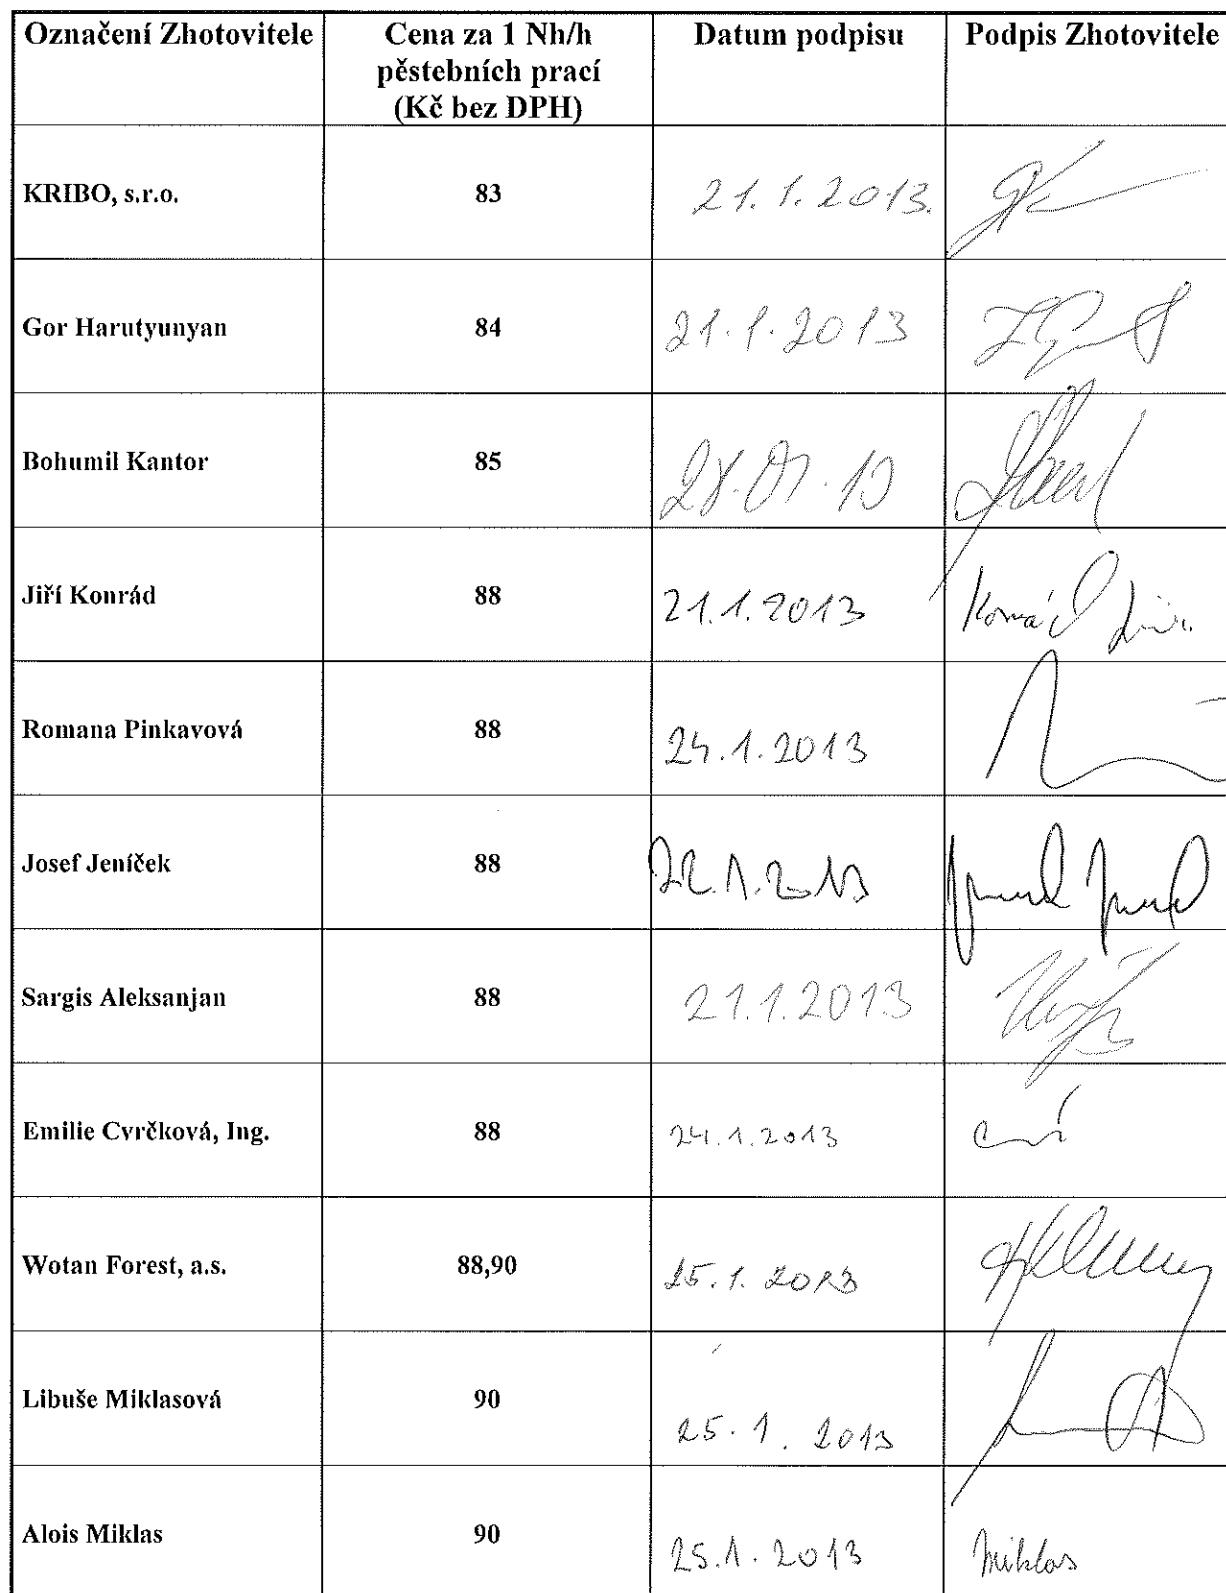 Označení Zhotovitele
Cena za 1 Nh/h
pěstebních prací
(Kč bez DPH)
Datum podpisu
Podpis Zhotovitele
KRIBO, s.r.o.
83
21.1.2013.
Gor Harutyunyan
84
21.1.2013
Bohumil Kantor
85
Jiří Konrád
88
21.1.2013
Konrád Jiří
Romana Pinkavová
88
24.1.2013
Josef Jeníček
88
22.1.2013
Sargis Aleksanjan
88
21.1.2013
Emilie Cvrčková, Ing.
88
24.1.2013
Wotan Forest, a.s.
88,90
25.1.2013
Libuše Miklasová
90
25.1.2013
Alois Miklas
90
25.1.2013
Miklas